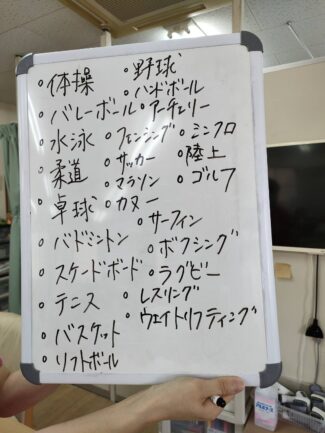 ◦体操
◦バレーボール
◦水泳
◦柔道
◦卓球
◦バドミントン
◦スケードボード
◦テニス
◦バスケット
◦ソフトボール
◦野球
◦ハンドボール
◦アーチェリー
◦フェンシング
◦サッカー
◦マラソン
◦カヌー
◦サーフィン
◦ボクシング
◦ラグビー
◦レスリング
◦ウェイトリフティング
◦シンクロ
◦陸上
◦ゴルフ